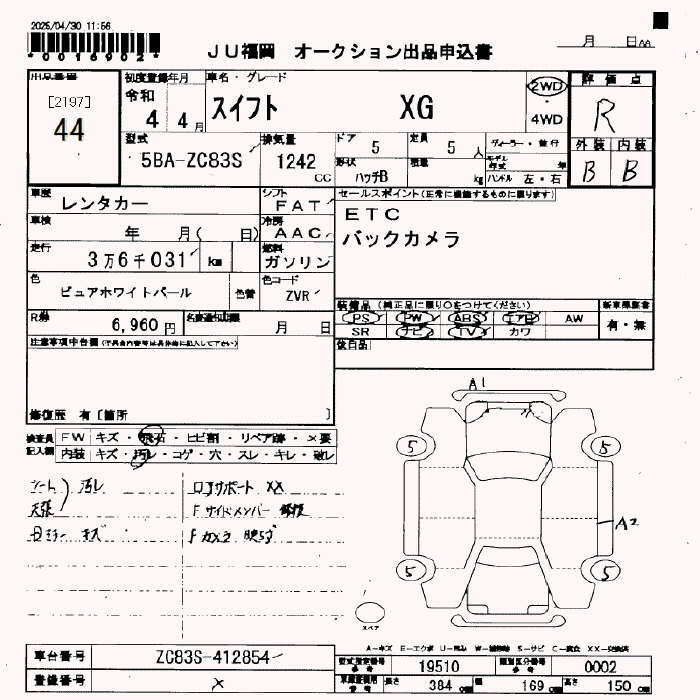 2025/04/30 11:56
*0016902*
JU福岡 オークション出品申込書
月 日AA
出品番号
[2197]
44
初度登録年月
令和
4 4月
車名・グレード
スイフト XG
2WD
・
4WD
評価点
R
型式
5BA-ZC83S
排気量
1242
CC
ドア
5
定員
5人
ディーラー・並行
形状
ハッチB
積量
kg
モデル年式 年
ハンドル 左・右
外装 内装
B B
車歴
レンタカー
シフト
FAT
セールスポイント(正常に機能するものに限ります)
ETC
バックカメラ
車検
年 月( 日)
冷房
AAC
走行
3万6千031 km
燃料
ガソリン
色
ピュアホワイトパール
色替
色コード
ZVR
装備品(純正品に限り○をつけてください)
新車保証書
有・無
PS PW ABS エアB AW
SR ナビ TV カワ
R券
6,960円
名変通知期限
月 日
後日品
注意事項申告欄(不具合内容等は具体的に記入して下さい)
修復歴 有〔箇所 〕
検査員
記入欄
FW キズ・飛石・ヒビ割・リペア跡・×要
内装 キズ・汚レ・コゲ・穴・スレ・キレ・破レ
シート
天張
汚レ
ロアサポート XX
Fサイドメンバー 修復
キズ
Fカメラ 映らず
A1
5 5
A2
5 5
スペア
A-キズ E-エクボ
車台番号
ZC83S-412854
登録番号
×
型式指定番号
19510
類別区分番号
0002
長さ
384 cm
幅
169 cm
高さ
150 cm